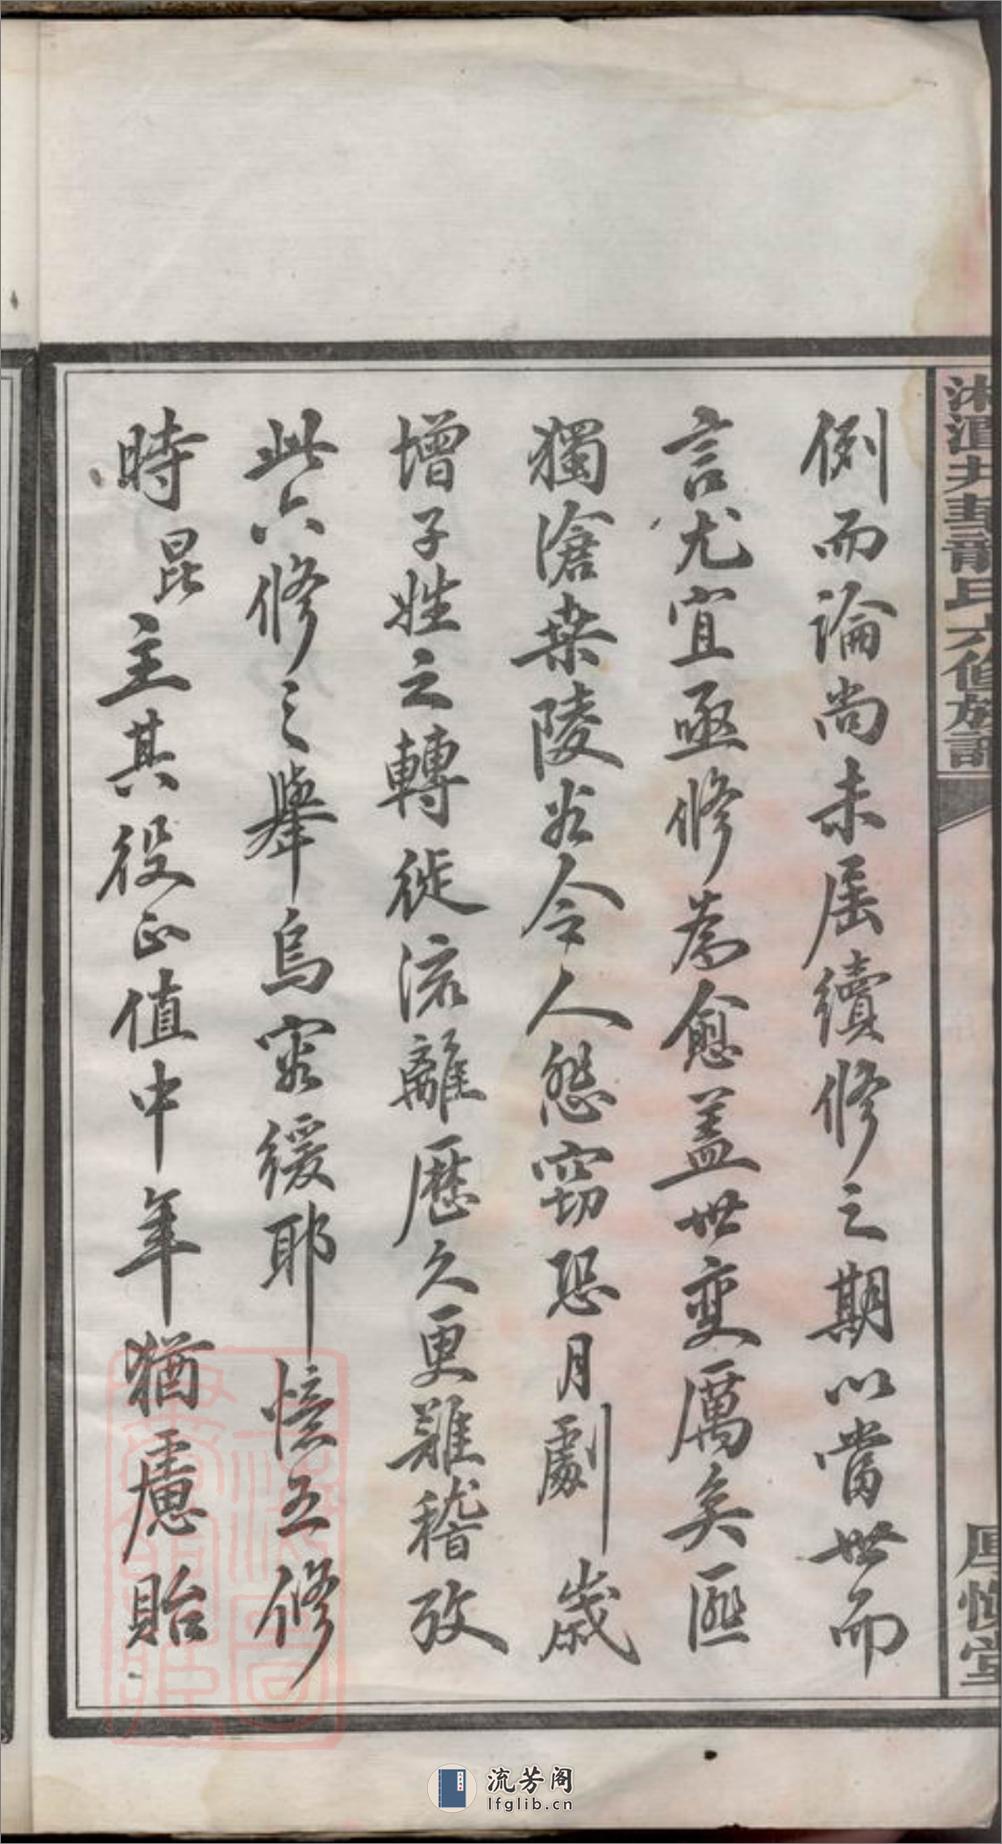 例而論尚未屆續修之期以當世而
言尤宜亟修為愈蓋世變厲矣匪
獨滄桑陵谷令人怨竊恐月劇歲
增子姓之轉徙流離歷久更難稽攷
此六修之舉烏容緩耶憶五修
時昆主其役正值中年猶慮貽
氏六修族譜
厚慎堂
流芳阁
lfglib.cn